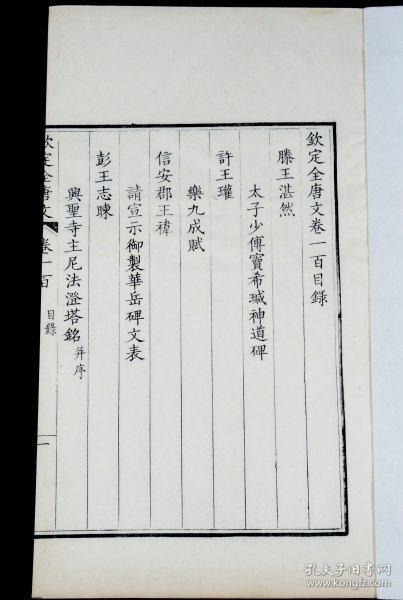 欽定全唐文卷一百目錄
滕王湛然
太子少傅竇希瑊神道碑
許王瓘
樂九成賦
信安郡王禕
請宣示御製華岳碑文表
彭王志暕
興聖寺主尼法澄塔銘并序
欽定全唐文 卷一百 目錄 一
孔夫子旧书网
www.kongfz.com